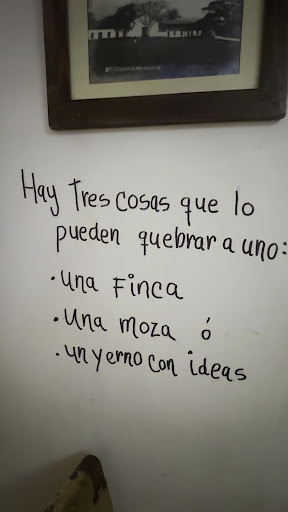 Hay Tres cosas que lo
pueden quebrar a uno:
• una Finca
• una moza ó
• un yerno con ideas